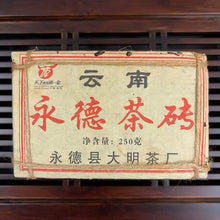 云南
永德茶砖
净含量：250克
永德县大明茶厂